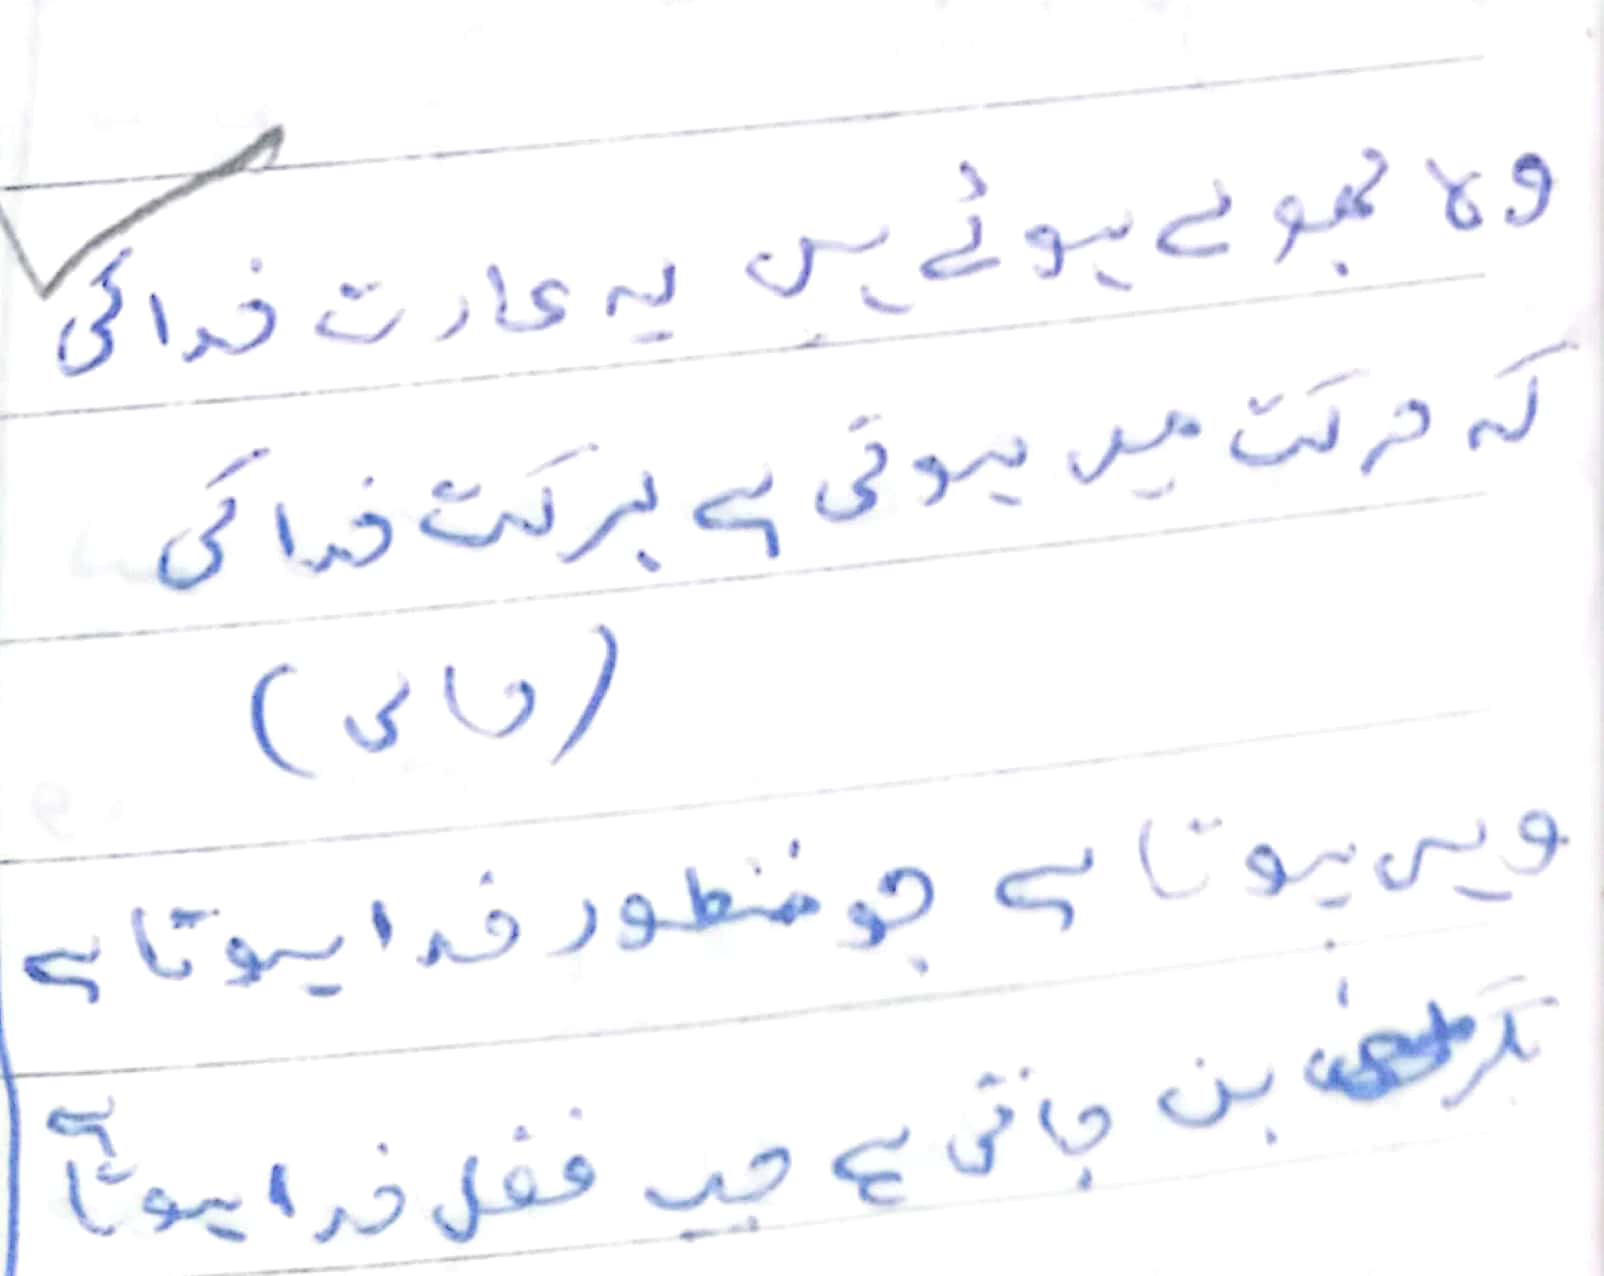 وہ بھولے ہوئے ہیں یہ عادت خدا کی
کہ حرکت میں ہوتی ہے برکت خدا کی
(حالی)
وہی ہوتا ہے جو منظور خدا ہوتا ہے
بن جاتی ہے جب فضل خدا ہوتا ہے